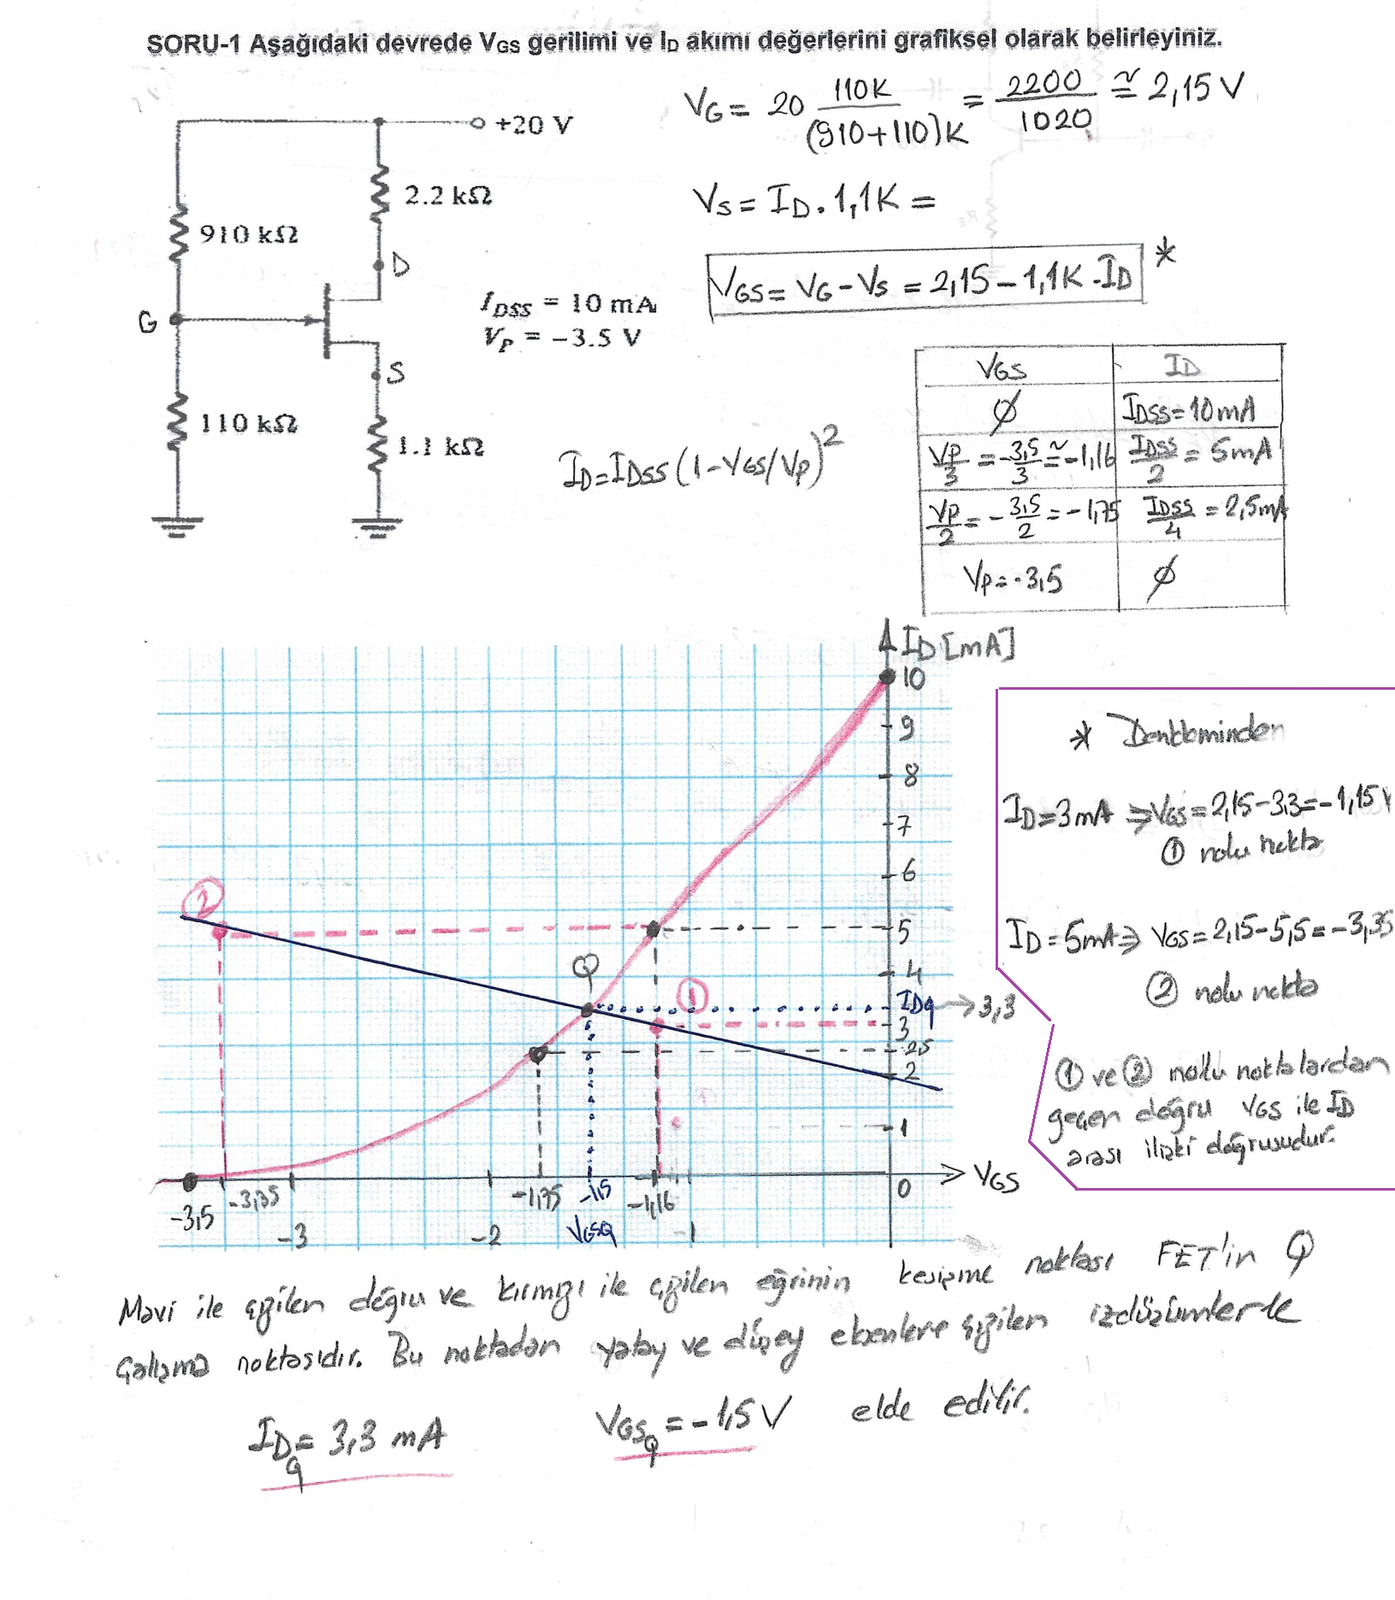 SORU-1 Aşağıdaki devrede VGS gerilimi ve ID akımı değerlerini grafiksel olarak belirleyiniz.
VG = 20 110K / (910+110)K = 2200 / 1020 ≅ 2,15 V
+20 V
2.2 kΩ
910 kΩ
VS = ID . 1,1K =
D
VGS = VG - VS = 2,15 - 1,1K . ID *
IDSS = 10 mA
VP = −3.5 V
G
S
110 kΩ
1.1 kΩ
ID = IDSS (1 - VGS/VP)²
VGS ID
∅ IDSS = 10mA
VP/3 = -3,5/3 ≅ -1,16 IDSS/2 = 5mA
VP/2 = -3,5/2 = -1,75 IDSS/4 = 2,5mA
VP = -3,5 ∅
ID [mA]
10
9
8
7
6
5
4
IDq → 3,3
3
2,5
2
1
0
VGS
② Q ①
-3,5 -3,35 -3 -2 -1,75 -1,5 -1,16 -1
VGSQ
* Denkleminden
ID = 3mA ⇒ VGS = 2,15 - 3,3 = -1,15 V
① nolu nokta
ID = 5mA ⇒ VGS = 2,15 - 5,5 = -3,35
② nolu nokta
① ve ② nolu noktalardan
geçen doğru VGS ile ID
arası ilişki doğrusudur.
Mavi ile çizilen doğru ve kırmızı ile çizilen eğrinin kesişme noktası FET'in Q
çalışma noktasıdır. Bu noktadan yatay ve düşey eksenlere çizilen izdüşümlerle
IDq = 3,3 mA VGSQ = -1,5 V elde edilir.